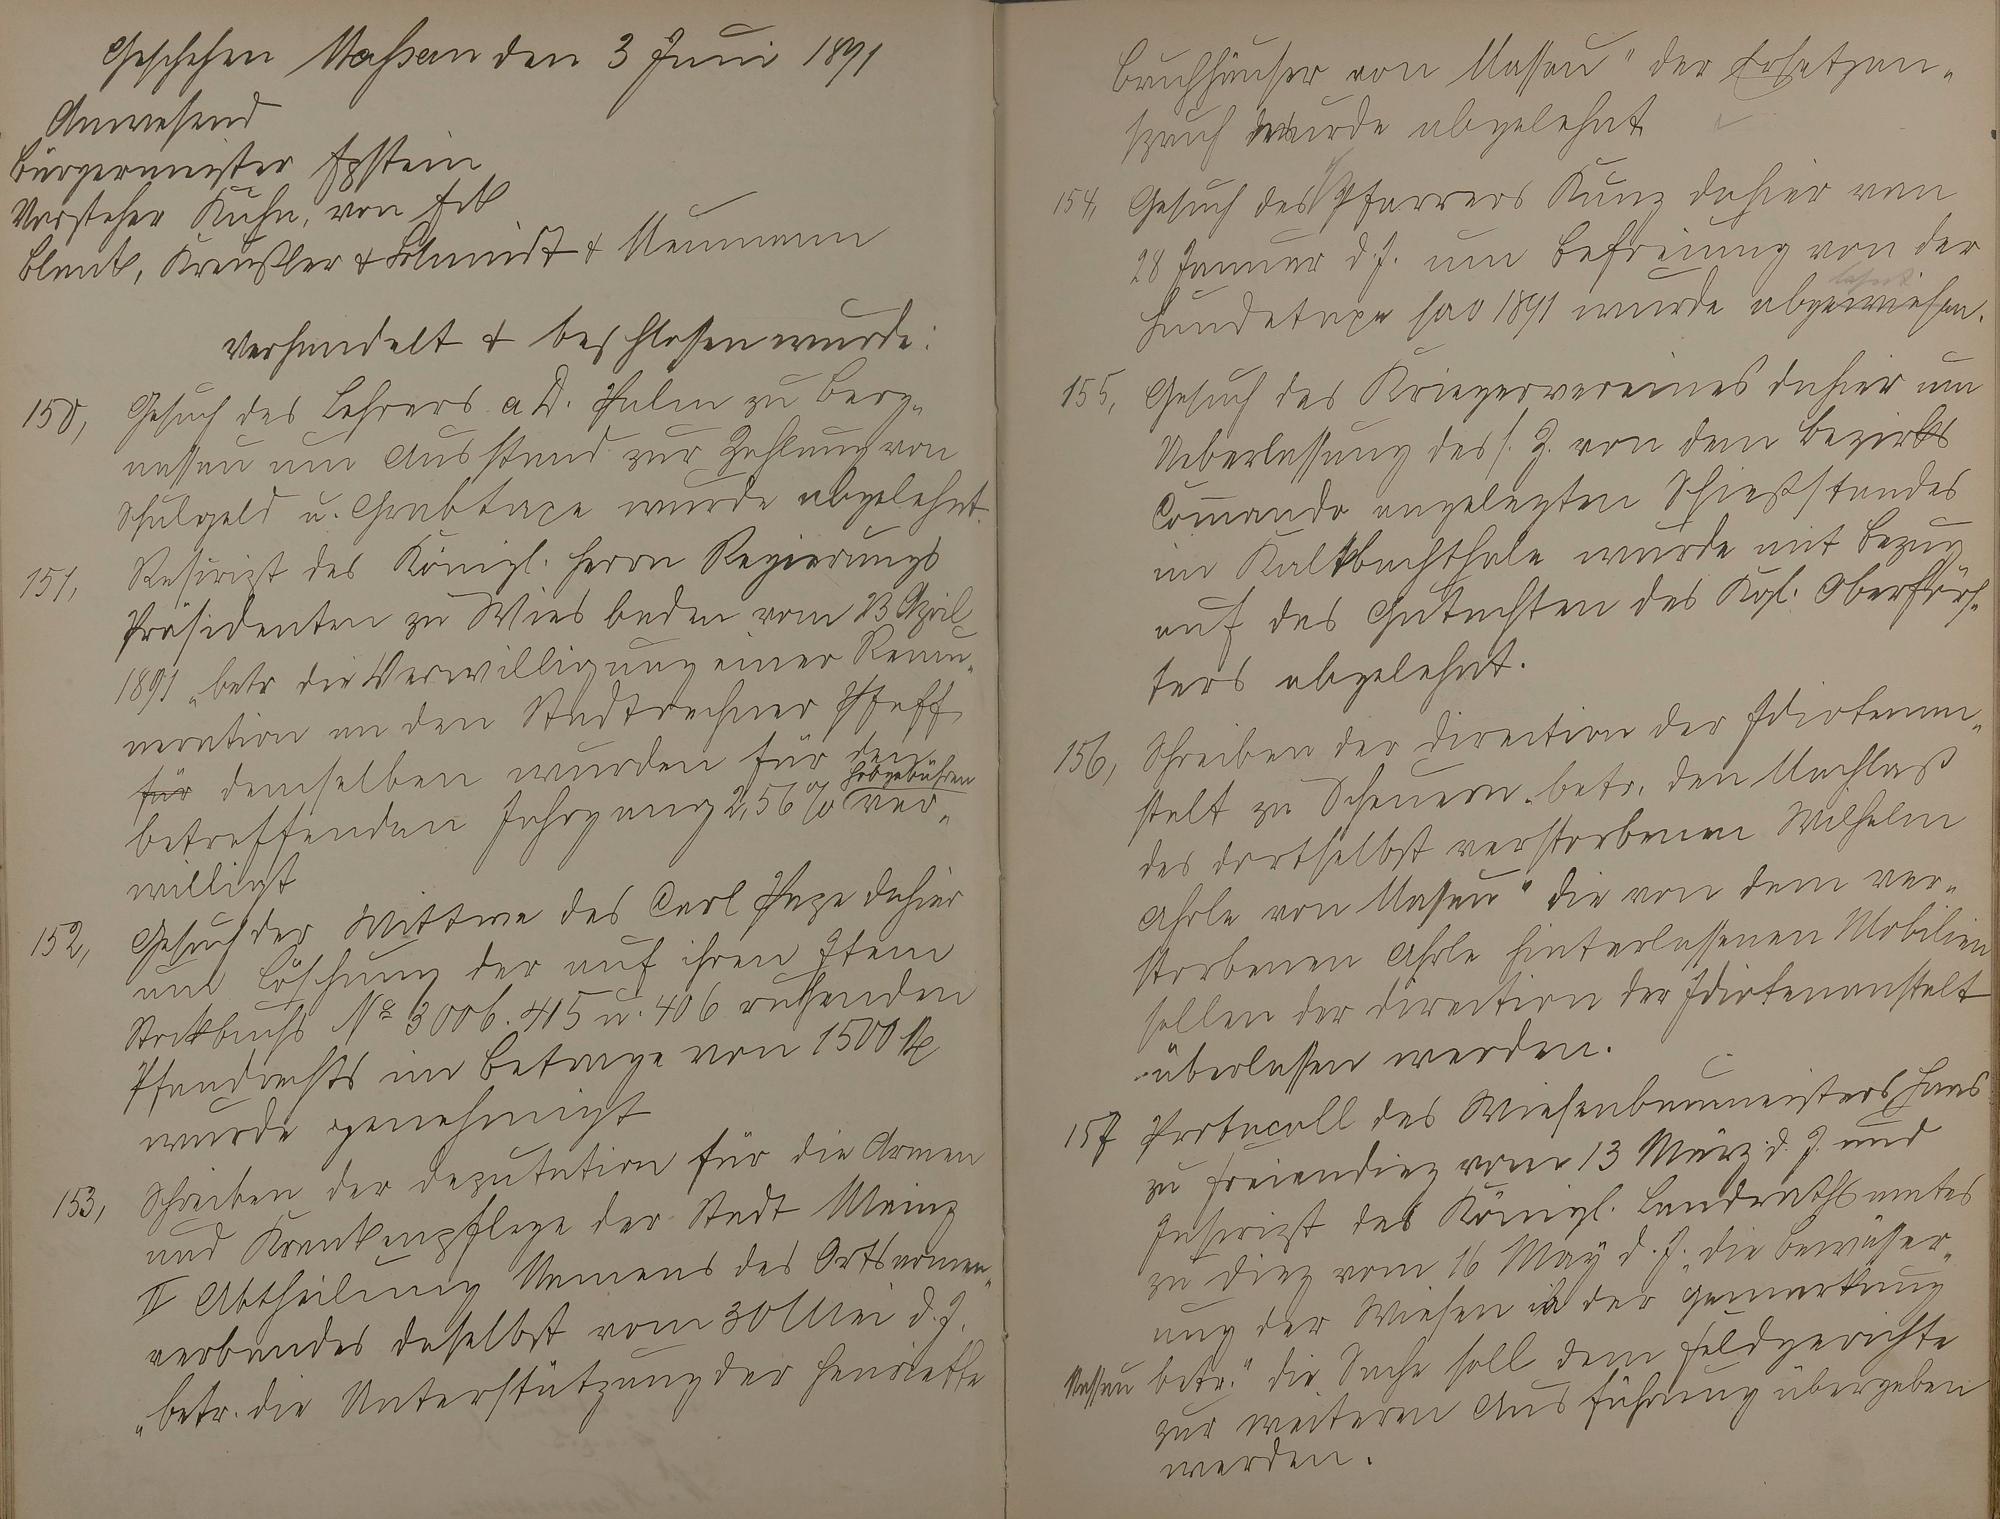 Geschehen Nassau den 3 Juni 1891
Anwesend
Bürgermeister Epstein
Vorsteher Kuhn, von Eck
Blank, Kreußler & Schmidt & Neumann
verhandelt & beschlossen wurde:
150, Gesuch des Lehrers a D. Palm zu Berg-
nassau um Ausstand zur Zahlung von
Schulgeld u. Grabtaxe wurde abgelehnt.
151, Rescript des Königl. Herrn Regierungs
Präsidenten zu Wiesbaden vom 23 April
1891 „betr die Verwilligung einer Remu-
neration an den Stadtrechner Pfaff
für demselben wurden für den
betreffenden Jahrgang 2,56 % Hebgebühren ver-
willigt
152, Gesuch der Wittwe des Carl Paze dahier
um Löschung der auf ihren Item
Stockbuchs No 3006. 415 u. 406 ruhenden
Pfandrechts im Betrage von 1500 M
wurde genehmigt
153, Schreiben der Deputation für die Armen
und Krankenpflege der Stadt Mainz
II Abtheilung Namens des Ortsarmen-
verbandes daselbst vom 30 Mai d. J.
„betr. die Unterstützung der Henriette
Bruchhäuser von Nassau" der Ersatzan-
spruch wurde abgelehnt
154, Gesuch des Pfarrers Kunz dahier von
28 Januar d J. um Befreiung von der
Hundetaxe pro 1891 wurde abgewiesen.
155, Gesuch des Kriegervereines dahier um
Ueberlassung des s. Z. von dem Bezirks
Commando angelegten Schießstandes
im Kaltbachthale wurde mit Bezug
auf das Gutachten des Kgl. Oberförs-
ters abgelehnt.
156, Schreiben der Direction der Idiotenan-
stalt zu Scheuern „betr. den Nachlaß
des dortselbst verstorbenen Wilhelm
Ahrle von Nassau" die von dem ver-
storbenen Ahrle hinterlassenen Mobilien
sollen der Direction der Idiotenanstalt
überlassen werden.
157 Protocoll des Wiesenbaumeisters Haas
zu Freiendiez vom 13 März d. J. und
Inscript des Königl. Landrathsamtes
zu Diez vom 16 May d. J. „die Bewässer-
ung der Wiesen in der Gemarkung
Nassau betr." die Sache soll dem Feldgerichte
zur weiteren Ausführung übergeben
werden.